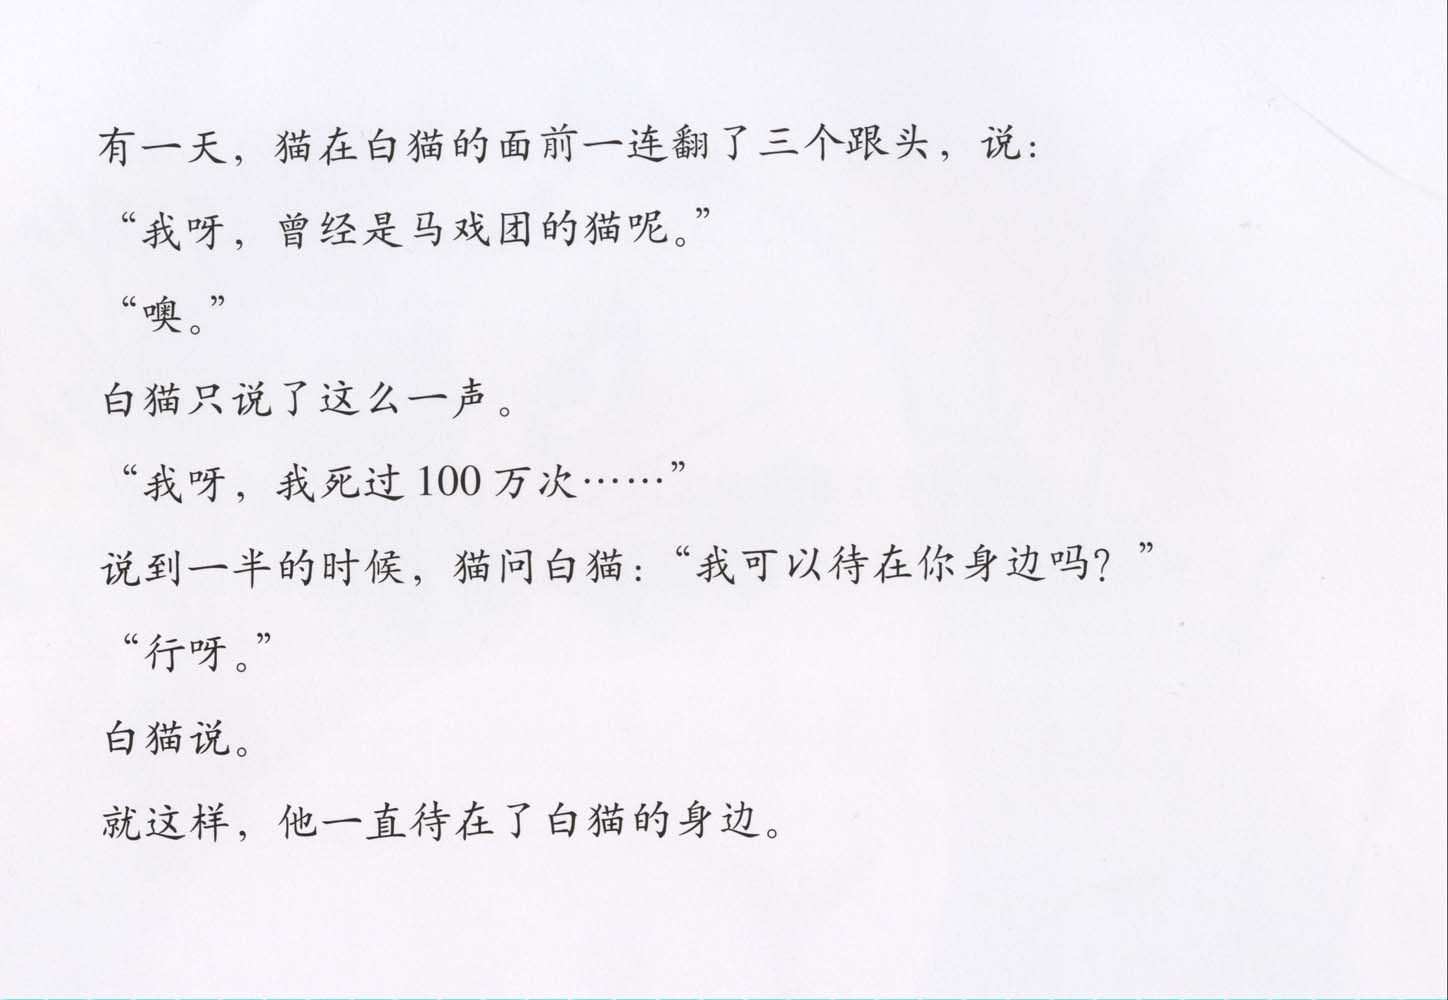 有一天，猫在白猫的面前一连翻了三个跟头，说：
“我呀，曾经是马戏团的猫呢。”
“噢。”
白猫只说了这么一声。
“我呀，我死过 100 万次……”
说到一半的时候，猫问白猫：“我可以待在你身边吗？”
“行呀。”
白猫说。
就这样，他一直待在了白猫的身边。